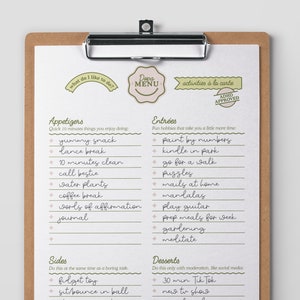 what do I like to do?
Dopa
MENU
activities à la carte
ADHD
APPROVED
Appetizers
Quick 10 minutes things you enjoy doing:
yummy snack
dance break
10 minutes clean
call bestie
water plants
coffee break
words of affirmation
journal
Entrées
Fun hobbies that take you a little more time:
paint by numbers
kindle in park
go for a walk
puzzles
nails at home
mandalas
play guitar
prep meals for week
gardening
meditate
Sides
Do this at the same time as a boring task:
fidget toy
sit/bounce in ball
Desserts
Do this only with moderation, like social media:
30 min TikTok
new tv show